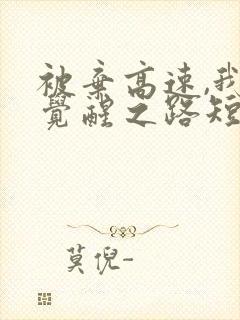 被弃高速,我
觉醒之路短
莫倪-